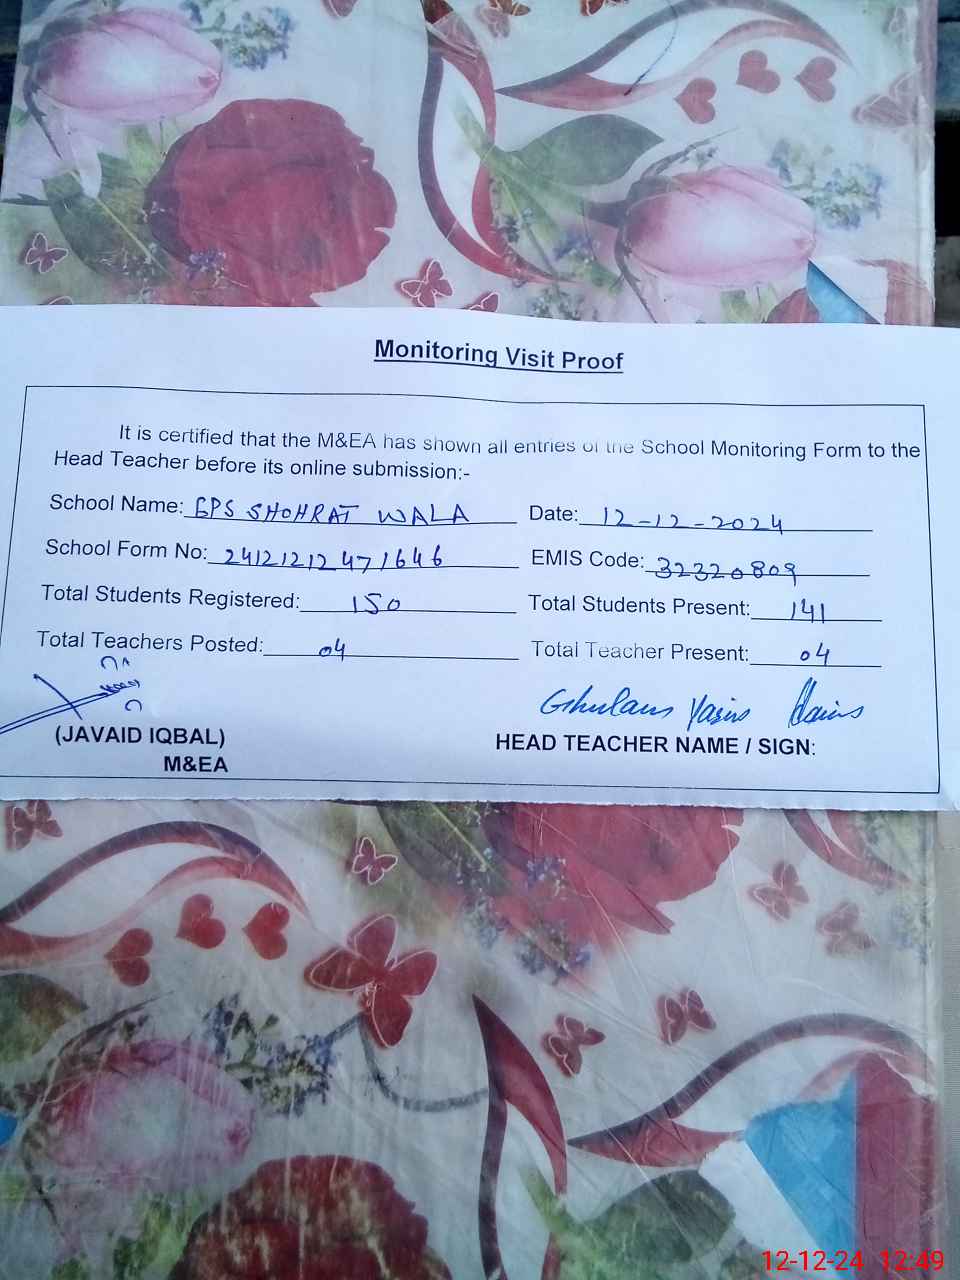 Monitoring Visit Proof
It is certified that the M&EA has shown all entries of the School Monitoring Form to the
Head Teacher before its online submission:-
School Name: GPS SHOHRAT WALA Date: 12-12-2024
School Form No: 24121212471646 EMIS Code: 32320809
Total Students Registered: 150 Total Students Present: 141
Total Teachers Posted: 04 Total Teacher Present: 04
Ghulam Yasin
(JAVAID IQBAL) HEAD TEACHER NAME / SIGN:
M&EA
12-12-24 12:49